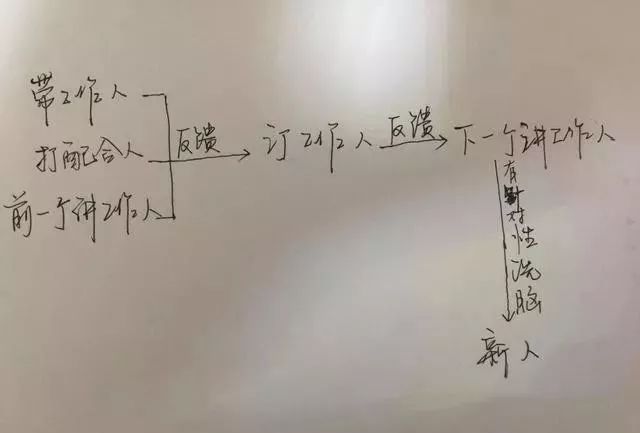 带工作人
打配合人
前一个讲工作人
反馈
订工作人
反馈
下一个讲工作人
有针对性洗脑
新人